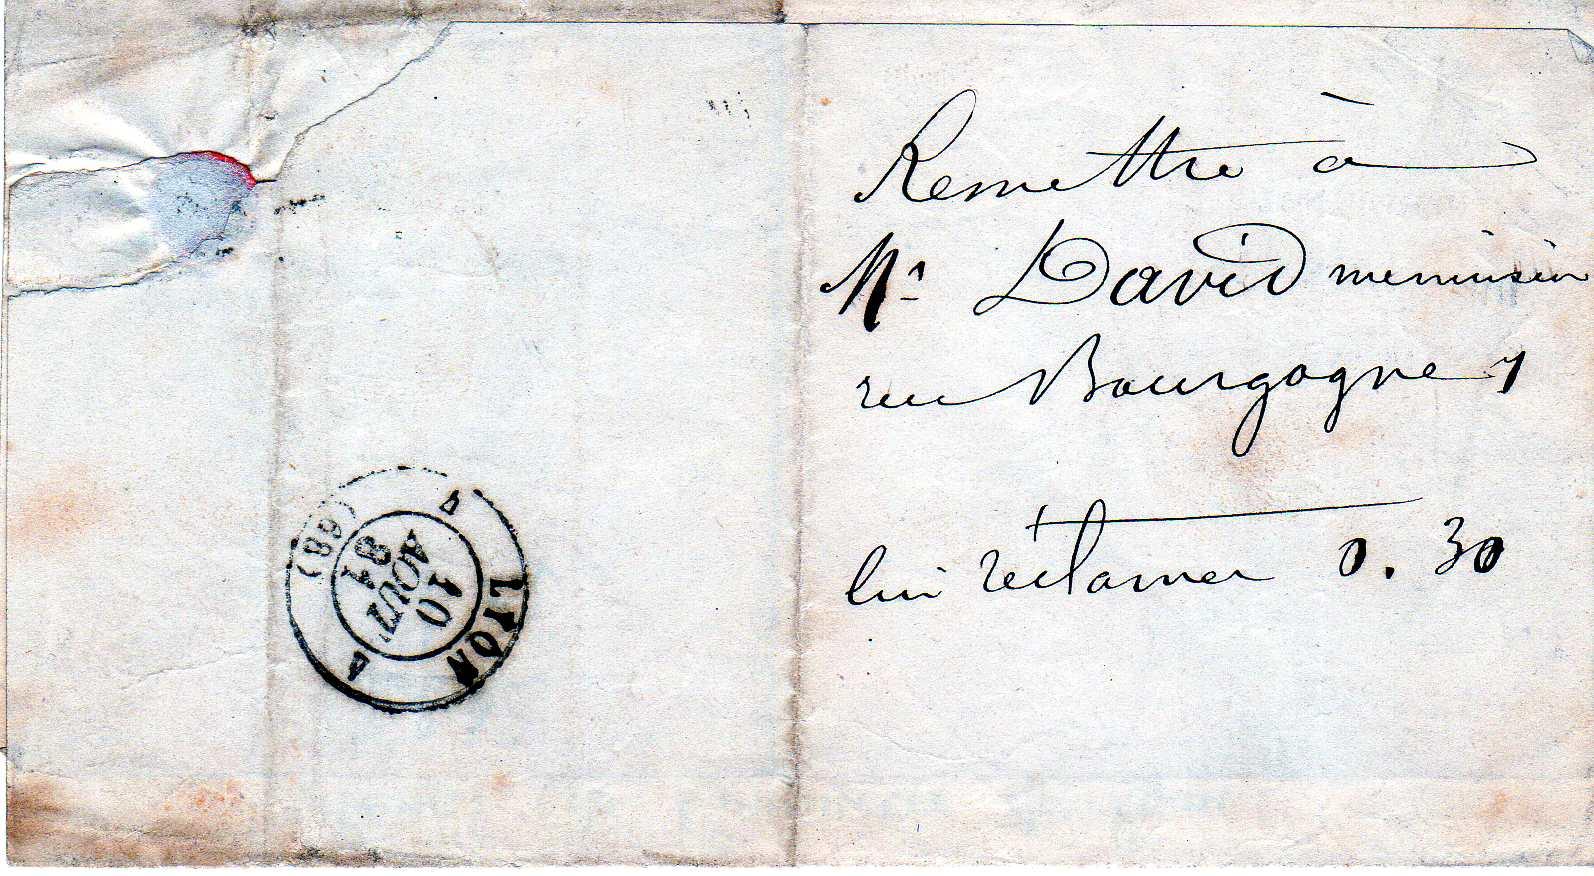 Remettre à
Mr David menuisier
rue Bourgogne 7
lui réclamer 0.30
LYON
(68)
10
AOUT
81